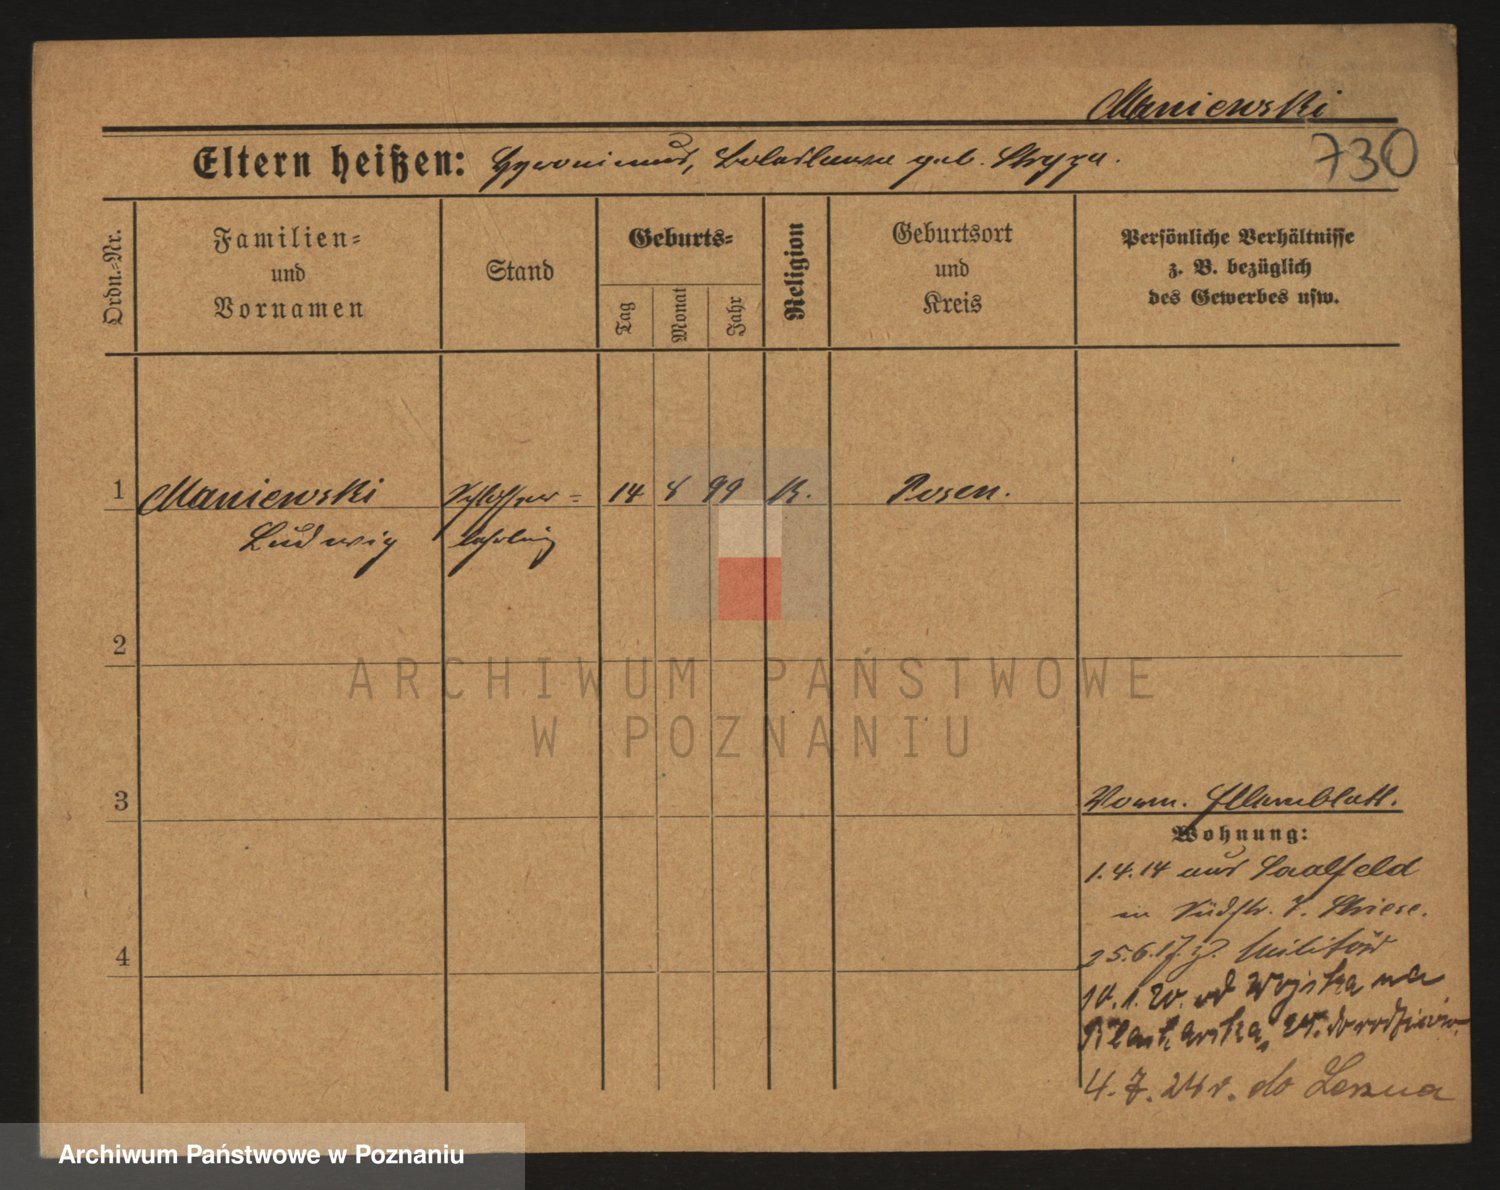 Maniewski
Eltern heißen: Hyronimus, Boleslawa geb. Stryza.
730
Ordn.-Nr.
Familien-
und
Vornamen
Stand
Geburts-
Tag
Monat
Jahr
Religion
Geburtsort
und
Kreis
Persönliche Verhältnisse
z. B. bezüglich
des Gewerbes usw.
1 Maniewski Schlosser- 14 8 99 K. Posen.
Ludwig lehrling
2
3
Vorm. Elternblatt.
Wohnung:
1.4.14 aus Saalfeld
in Südstr. 7.
4
25.6.17. z. Militär
10.1.20. od Wojska na
do rodziców
4.7.24 r. do Leszna
ARCHIWUM PAŃSTWOWE
W POZNANIU
Archiwum Państwowe w Poznaniu